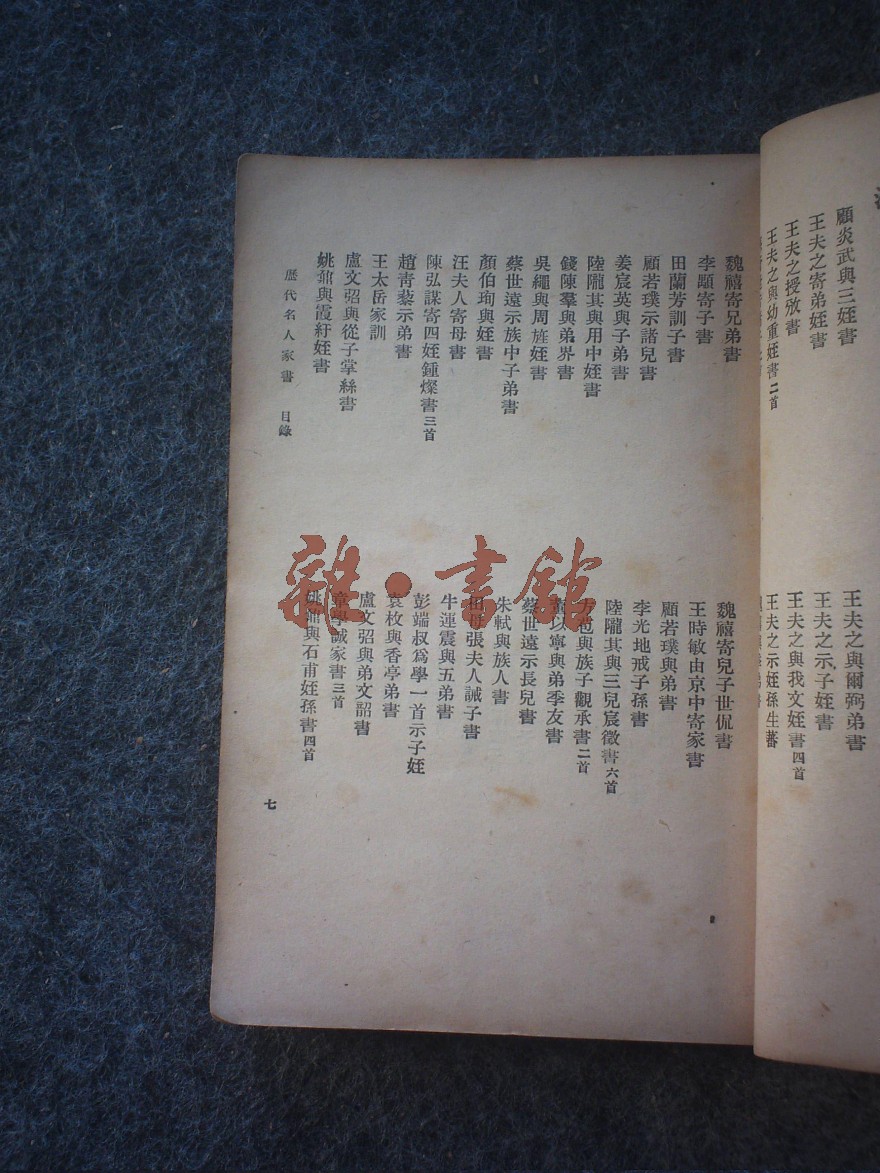 顧炎武與三姪書
王夫之寄弟姪書
王夫之授攽書
王夫之與幼重姪書二首
王夫之與爾弼弟書
王夫之示子姪書
王夫之與我文姪書四首
王夫之示姪孫生蕃
魏禧寄兄弟書
李顒寄子書
田蘭芳訓子書
顧若璞示諸兒書
姜宸英與子弟書
陸隴其與用中姪書
錢陳羣與弟界書
吳繩與周旌姪書
蔡世遠示族中子弟書
顏伯珣與姪書
汪夫人寄母書
陳弘謀寄四姪鍾燦書三首
趙青藜示弟書
王太岳家訓
盧文弨與從子掌絲書
姚鼐與霞紆姪書
魏禧寄兒子世侃書
王時敏由京中寄家書
顧若璞與弟書
李光地戒子孫書
陸隴其與三兒宸徵書六首
方苞與族子觀承書二首
黃以寧與弟季友書
蔡世遠示長兒書
朱軾與族人書
田母張夫人誡子書
牛運震與五弟書
彭端叔爲學一首示子姪
袁枚與香亭弟書
盧文弨與弟文韶書
章學誠家書三首
姚鼐與石甫姪孫書四首
歷代名人家書 目錄
七
雜·書館